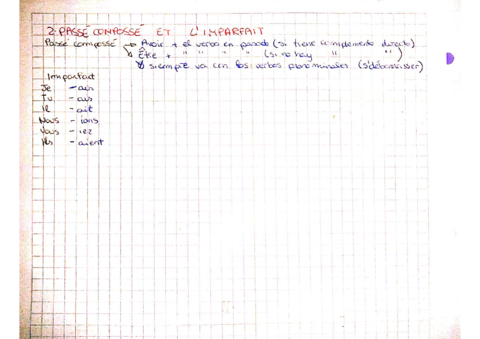 2. PASSÉ COMPOSSÉ ET L'IMPARFAIT
Passé compossé → Avoir + el verbo en pasado (si tiene complemento directo)
↳ Être + " " " " (si no hay " " )
↳ siempre va con los verbos pronominales
Imparfait
Je - ais
Tu - ais
Il - ait
Nous - ions
Vous - iez
Ils - aient